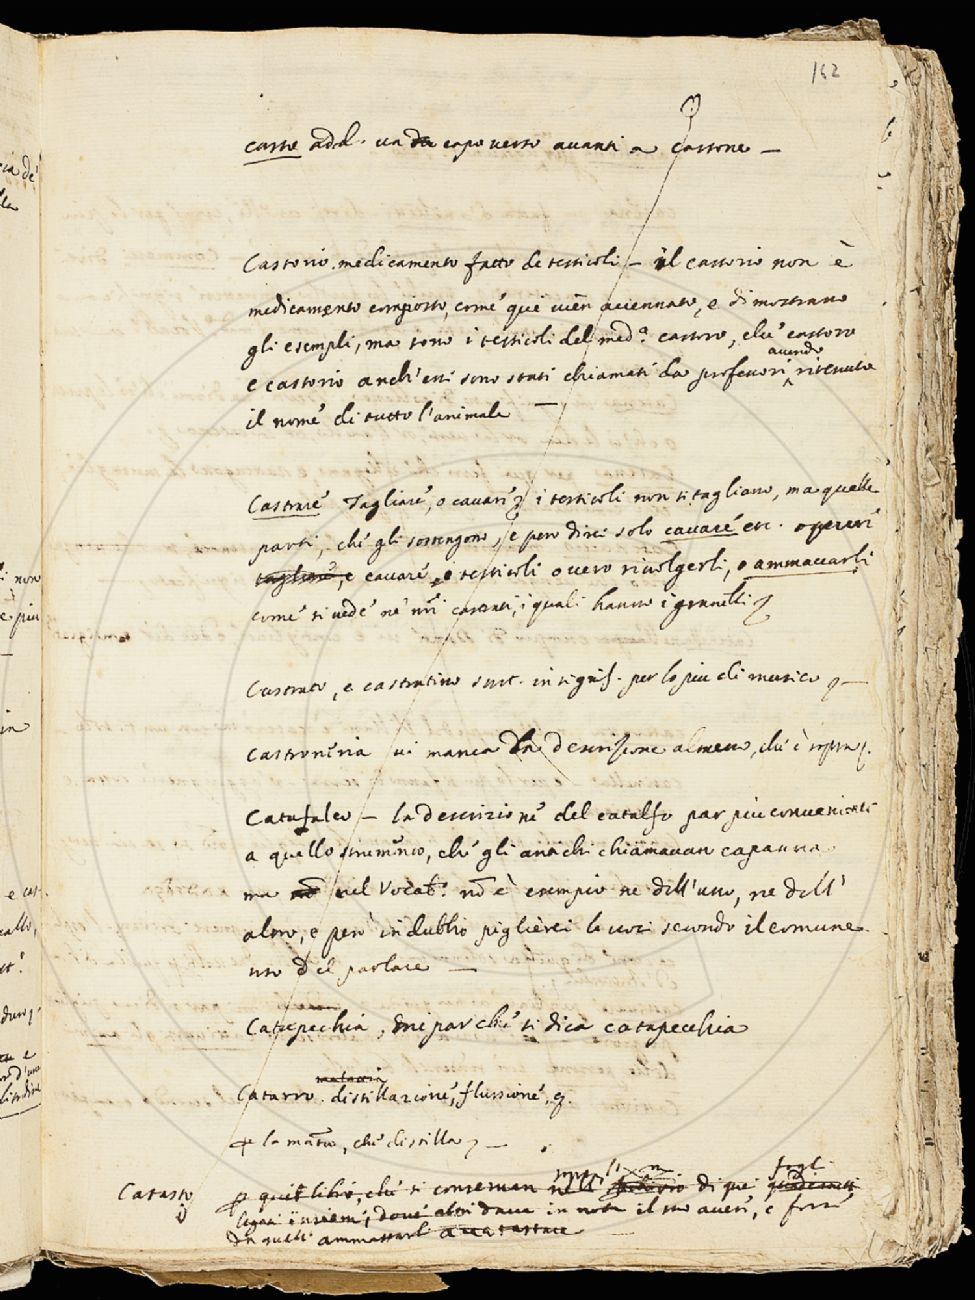 162
casto add. va da capo verso avanti a Castone —
Castorio. medicamento fatto de testicoli — il castorio non è
medicamento composto, come qui vien accennato, e dimostrano
gli esempli, ma sono i testicoli del med.º castoro, che castoro
e castorio anch'essi sono stati chiamati da professori avendo ritenuto
il nome di tutto l'animale —
Castrare Tagliare, o cavare i testicoli non si tagliano, ma quelle
parti, che gli sostengono, e però direi solo cavare etc. opererei
tagliare, e cavare i testicoli overo rivolgerli, o ammaccarli
come si vede ne nri castrati, i quali hanno i granelli
Castrato, e castratino sust. in signif. per lo più di musico —
Castroneria vi manca la descrizione almeno, che è sopra.
Catafalco — la descrizione del catalfo par più conveniente
a quello strumento, che gli antichi chiamavan capanna
ma nel Vocab. nō è esempio ne dell'uno, ne dell'
altro, e però in dubbio piglierei le voci secondo il comune
uso del parlare —
Catapechia, mi par che si dica catapecchia
materia
Catarro. distillazione, flussione, e
p la matia, che distilla —
Catasto p quei libri, che si conservan di que fogli
legati insieme, dove altri dava in nota il suo avere, e forse
da quelli ammassarli accatastare